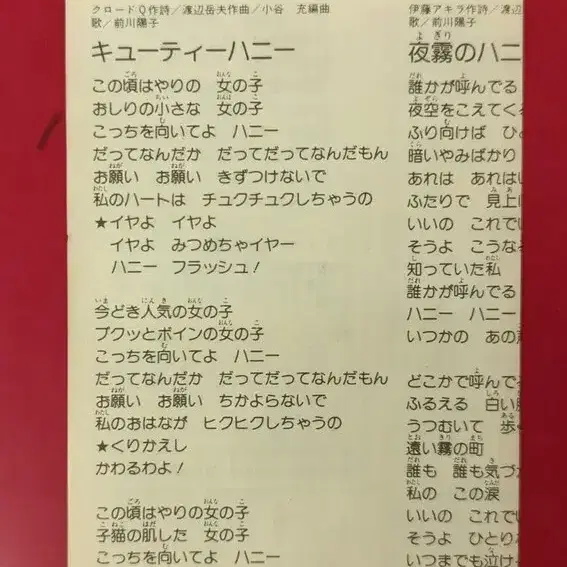 クロードQ作詩／渡辺岳夫作曲／小谷　充編曲
歌／前川陽子
キューティーハニー
この頃はやりの　女の子
おしりの小さな　女の子
こっちを向いてよ　ハニー
だってなんだか　だってだってなんだもん
お願い　お願い　きずつけないで
私のハートは　チュクチュクしちゃうの
★イヤよ　イヤよ
イヤよ　みつめちゃイヤー
ハニー　フラッシュ！
今どき人気の女の子
プクッとボインの女の子
こっちを向いてよ　ハニー
だってなんだか　だってだってなんだもん
お願い　お願い　ちかよらないで
私のおはなが　ヒクヒクしちゃうの
★くりかえし
かわるわよ！
この頃はやりの女の子
子猫の肌した　女の子
こっちを向いてよ　ハニー
伊藤アキラ作詩／渡辺
歌／前川陽子
夜霧のハニ
誰かが呼んでる
夜空をこえてく
ふり向けば　ひ
暗いやみばかり
あれは　あれは
ふたりで　見上
いいの　これで
そうよ　こうな
知っていた私
誰かが呼んでる
ハニー　ハニー
いつかの　あの
どこかで呼んで
ふるえる　白い
うつむいて　歩
遠い霧の町
誰も　誰も気づ
私の　この涙
いいの　これで
そうよ　ひとり
いつまでも泣け